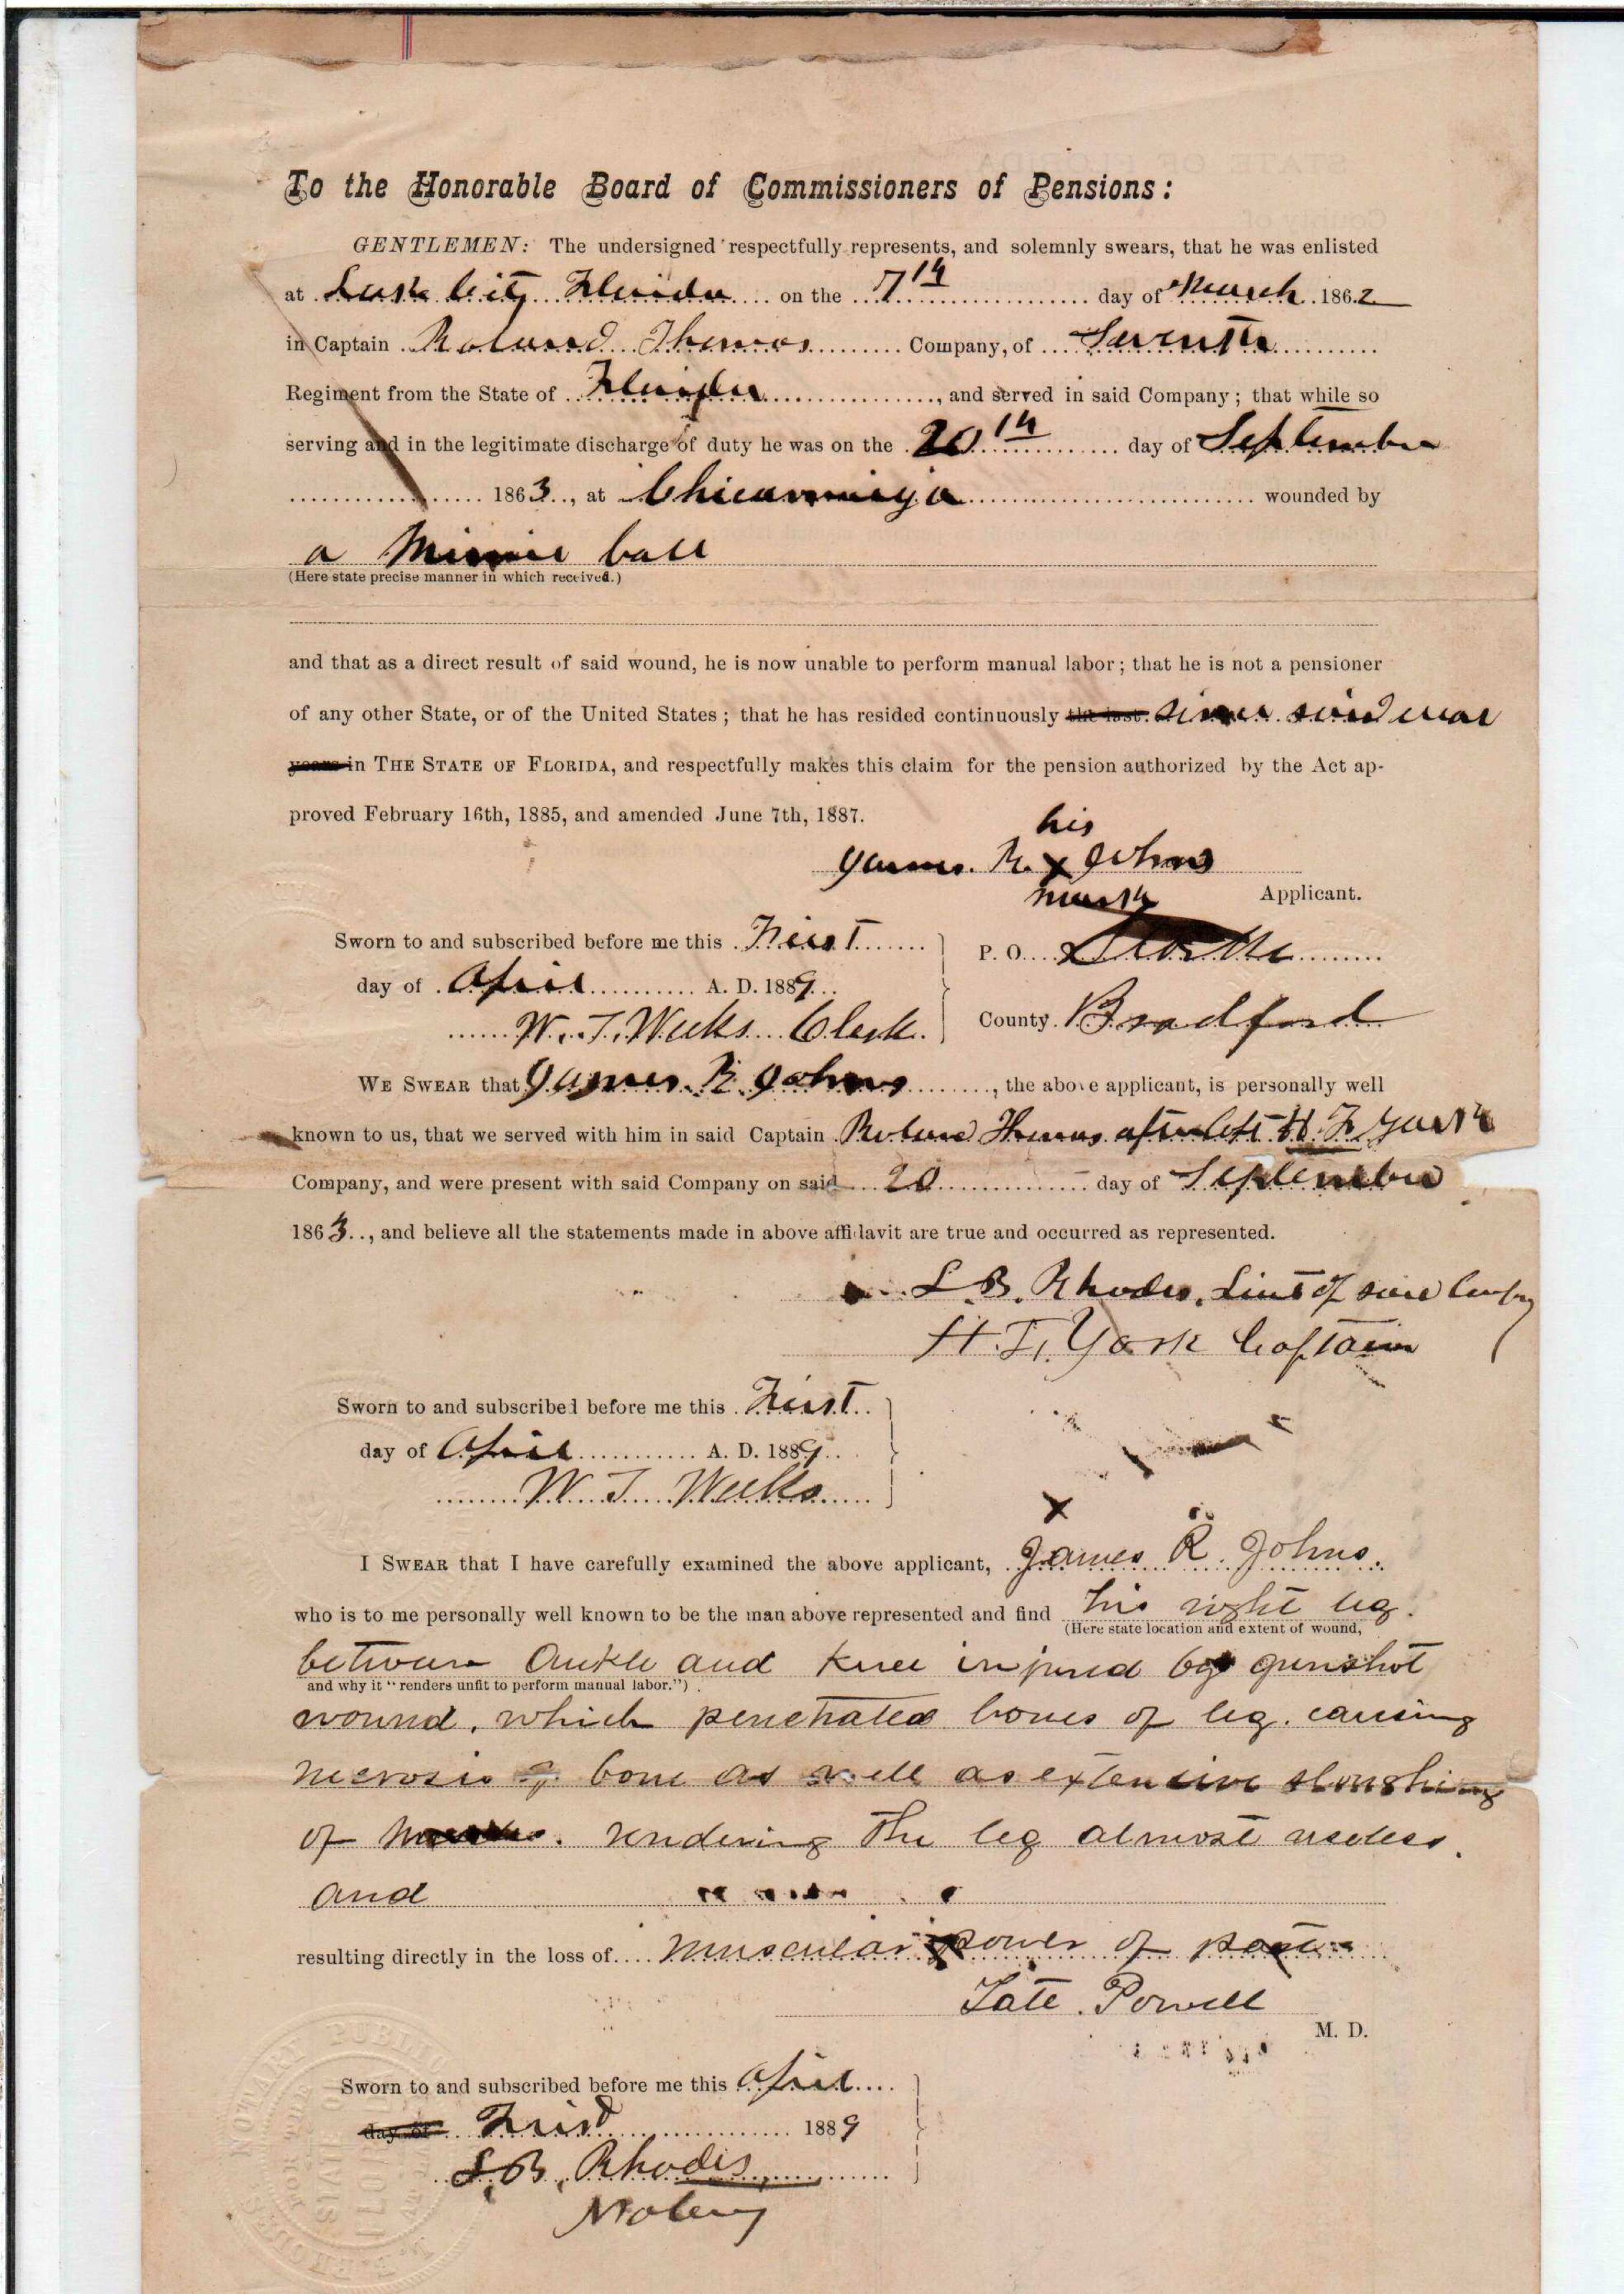 To the Honorable Board of Commissioners of Pensions:
GENTLEMEN: The undersigned respectfully represents, and solemnly swears, that he was enlisted
at Lake City Florida on the 7th day of March 1862
in Captain Roland Thomas Company, of Seventh
Regiment from the State of Florida, and served in said Company; that while so
serving and in the legitimate discharge of duty he was on the 20th day of September
1863, at Chicamauga wounded by
a Minnie ball
(Here state precise manner in which received.)
and that as a direct result of said wound, he is now unable to perform manual labor; that he is not a pensioner
of any other State, or of the United States; that he has resided continuously the last since said war
years in THE STATE OF FLORIDA, and respectfully makes this claim for the pension authorized by the Act ap-
proved February 16th, 1885, and amended June 7th, 1887.
his
James R x Johns
mark Applicant.
Sworn to and subscribed before me this First
P. O. Starke
day of April A. D. 1889
W. T. Weeks Clerk.
County Bradford
WE SWEAR that James R Johns, the above applicant, is personally well
known to us, that we served with him in said Captain Roland Thomas H. F. York
Company, and were present with said Company on said 20 day of September
1863, and believe all the statements made in above affidavit are true and occurred as represented.
L. B. Rhodes, Lieut of said Company
H. F. York Captain
Sworn to and subscribed before me this First
day of April A. D. 1889
W. T. Weeks
x
I SWEAR that I have carefully examined the above applicant, James R. Johns.
who is to me personally well known to be the man above represented and find his right leg
(Here state location and extent of wound,
between ankle and knee injured by gunshot
and why it "renders unfit to perform manual labor.")
wound, which penetrated bones of leg. causing
necrosis of bone as well as extensive sloughing
of muscles. rendering the leg almost useless.
and
resulting directly in the loss of muscular power of part
Tate Powell
M. D.
Sworn to and subscribed before me this April
day of First 1889
L. B. Rhodes
Notary
NOTARY PUBLIC
FOR THE
STATE OF
FLORIDA
AT LARGE
L. B. RHODES